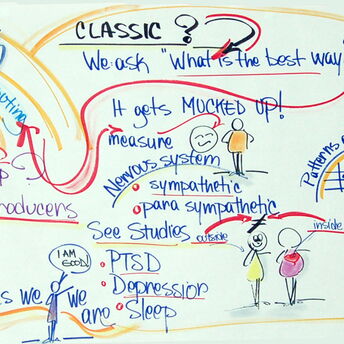 CLASSIC ?
We ask "What is the best way
It gets MUCKED UP!
measure
Nervous system
• sympathetic
• para sympathetic
roducers
See Studies
outside
inside
Patterns
I AM GOOD!
• PTSD
• Depression
• Sleep
s we we are